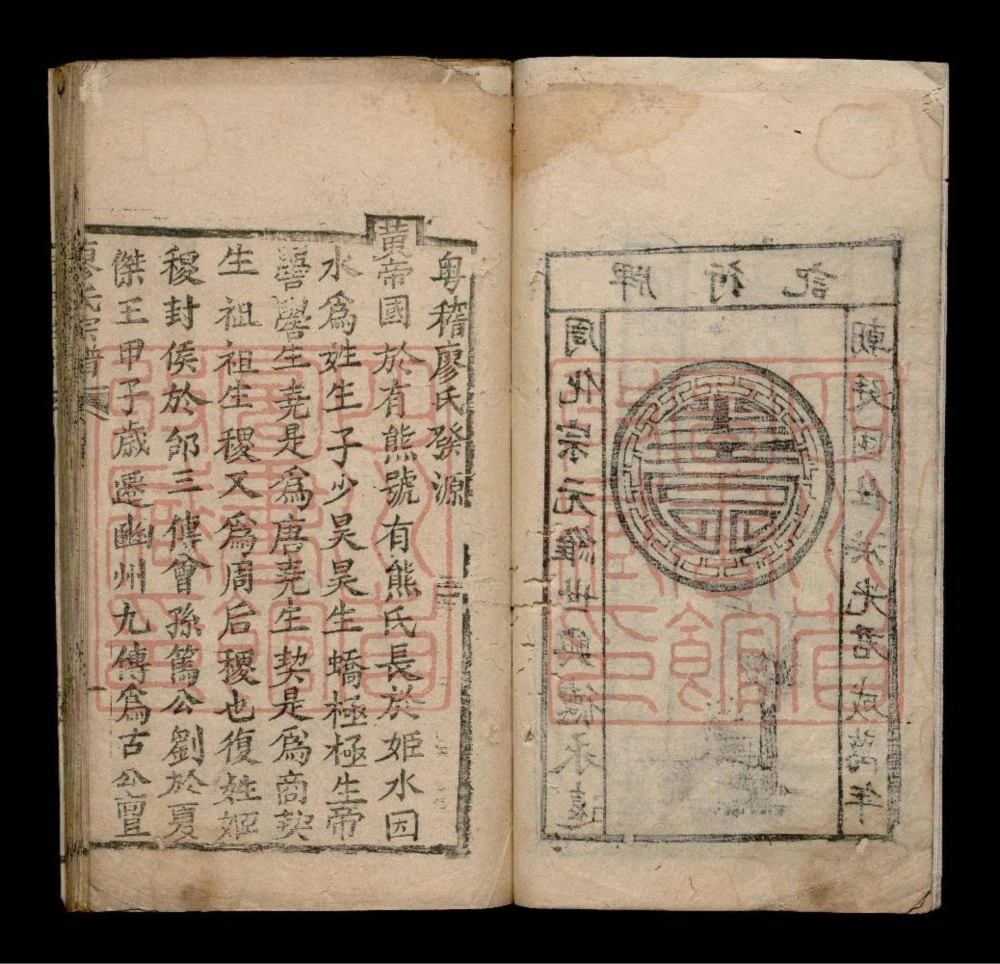 記行牌
朝廷 萬年
周代宗元維世興德永遠
粵稽廖氏發源
黃帝國於有熊號有熊氏長於姬水因
水爲姓生子少昊昊生蟜極極生帝
嚳嚳生堯是爲唐堯生契是爲商契
生祖祖生稷又爲周后稷也復姓姬
稷封侯於邰三傳曾孫篤公劉於夏
傑王甲子歲遷幽州九傳爲古公亶
廖氏宗譜
一